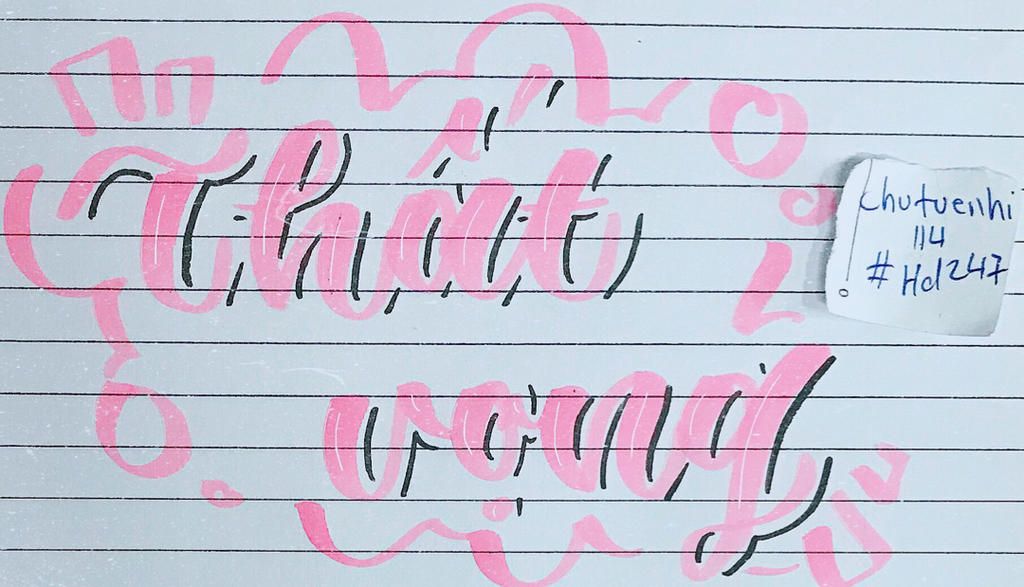 Thất
vọng
chutuenhi
114
#Hd247